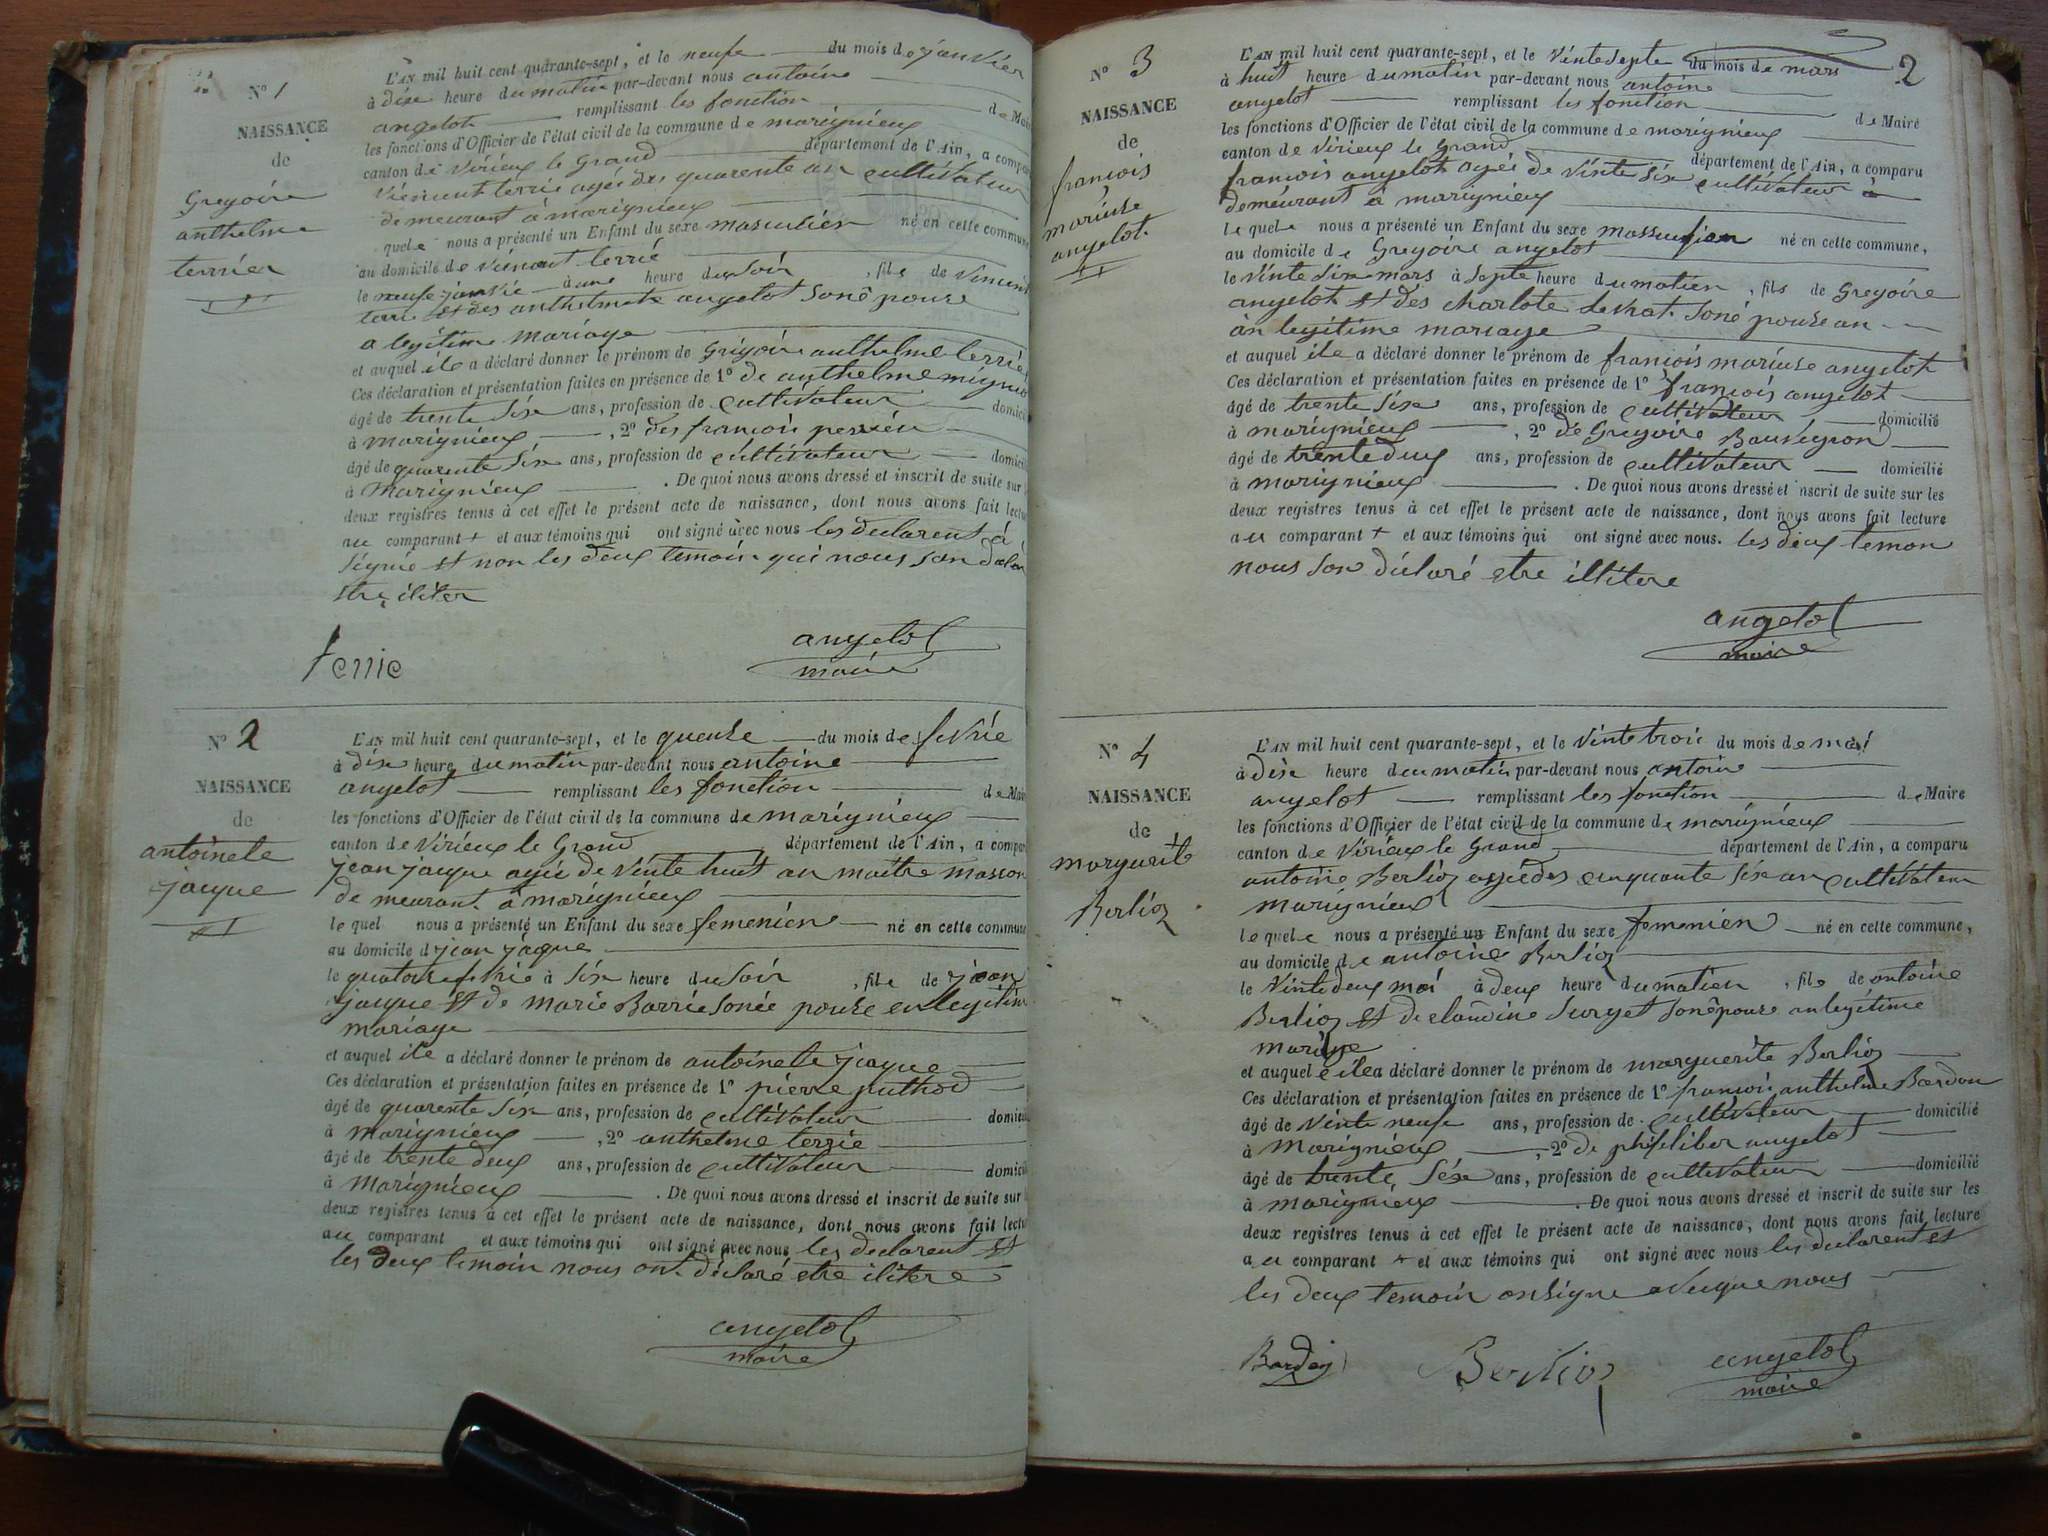 N° 1
NAISSANCE
de
Gregoire
anthelme
terrier
L'AN mil huit cent quarante-sept, et le neufe du mois de janvier
à dixe heure du matin par-devant nous antoine
angelot remplissant les fonction de Mair
les fonctions d'Officier de l'état civil de la commune de marignieux
canton de Virieux le Grand département de l'Ain, a compar
terrié agés des quarente an cultivateur
demeurant à marignieux
quel nous a présenté un Enfant du sexe masculien né en cette commune
au domicile de terrié
le neufe janvié à une heure du soir, fils de Vincent
terrié et des anthelmete angelot son épouse
a legitime mariage
et auquel ile a déclaré donner le prénom de Grégoire anthelme terrié
Ces déclaration et présentation faites en présence de 1° de anthelme
âgé de trente sixe ans, profession de cultivateur domicil
à marignieux, 2° des françois
âgé de quarente six ans, profession de cultivateur domicil
à Marignieux. De quoi nous avons dressé et inscrit de suite sur
deux registres tenus à cet effet le présent acte de naissance, dont nous avons fait lectu
au comparant + et aux témoins qui ont signé avec nous les declarent a
signé et non les deux temoin qui nous son déclar
etre iliter
terrie
angelot
maire
N° 2
NAISSANCE
de
antoinete
jacque
L'AN mil huit cent quarante-sept, et le quense du mois de fevrié
à dixe heure du matin par-devant nous antoine
angelot remplissant les fonction de Mair
les fonctions d'Officier de l'état civil de la commune de marignieux
canton de Virieux le Grand département de l'Ain, a compar
jean jacque agée de vinte huit an maitre masson
demeurant à marignieux
le quel nous a présenté un Enfant du sexe femenien né en cette commune
au domicile d jean jacque
le quatorse fevrie à six heure du soir, file de jean
jacque et de marie Barrie son épouse en legitime
mariage
et auquel ile a déclaré donner le prénom de antoinete jacque
Ces déclaration et présentation faites en présence de 1° pierre puthod
âgé de quarente six ans, profession de cultivateur domicil
à marignieux, 2° anthelme terrie
âgé de trente deux ans, profession de cultivateur domicil
à Marignieux. De quoi nous avons dressé et inscrit de suite sur
deux registres tenus à cet effet le présent acte de naissance, dont nous avons fait lectu
au comparant et aux témoins qui ont signé avec nous les declarent et
les deux temoin nous ont déclaré etre ilitere
angelot
maire
2
N° 3
NAISSANCE
de
francois
mariuse
angelot
L'AN mil huit cent quarante-sept, et le vinte septe du mois de mars
à huit heure du matin par-devant nous antoine
angelot remplissant les fonction de Maire
les fonctions d'Officier de l'état civil de la commune de marignieux
canton de Virieux le Grand département de l'Ain, a comparu
francois angelot agés de vinte six cultivateur à
demeurant à marignieux
le quel nous a présenté un Enfant du sexe né en cette commune,
au domicile de Gregoire angelot
le vinte sixe mars à septe heure du matien, fils de Gregoire
angelot et des charlote devrat son épouse an
an legitime mariage
et auquel ile a déclaré donner le prénom de francois mariuse angelot
Ces déclaration et présentation faites en présence de 1° francois angelot
âgé de trente sixe ans, profession de cultivateur domicilié
à marignieux, 2° de Gregoire Bauveyron
âgé de trente deux ans, profession de cultivateur domicilié
à marignieux. De quoi nous avons dressé et inscrit de suite sur les
deux registres tenus à cet effet le présent acte de naissance, dont nous avons fait lecture
au comparant + et aux témoins qui ont signé avec nous. les deux temon
nous son déclaré etre illitere
angelot
maire
N° 4
NAISSANCE
de
marguerite
Berlioz
L'AN mil huit cent quarante-sept, et le vinte trois du mois de mai
à dixe heure du matin par-devant nous antoine
angelot remplissant les fonction de Maire
les fonctions d'Officier de l'état civil de la commune de marignieux
canton de Virieux le Grand département de l'Ain, a comparu
antoine Berlioz agé des cinquante six an cultivateur
marignieux
le quel nous a présenté un Enfant du sexe femenien né en cette commune,
au domicile de antoine Berlioz
le vinte deux mai à deux heure du matien, file de antoine
Berlioz et de claudine Surget son épouse an legitime
mariage
et auquel ile a déclaré donner le prénom de marguerite Berlioz
Ces déclaration et présentation faites en présence de 1° francois anthelme Bardon
âgé de vinte neufe ans, profession de cultivateur domicilié
à Marignieux, 2° de philiber angelot
âgé de trente sixe ans, profession de cultivateur domicilié
à marignieux. De quoi nous avons dressé et inscrit de suite sur les
deux registres tenus à cet effet le présent acte de naissance, dont nous avons fait lecture
au comparant + et aux témoins qui ont signé avec nous les declarent et
les deux temoin on signe avecque nous
Berlioz
angelot
maire